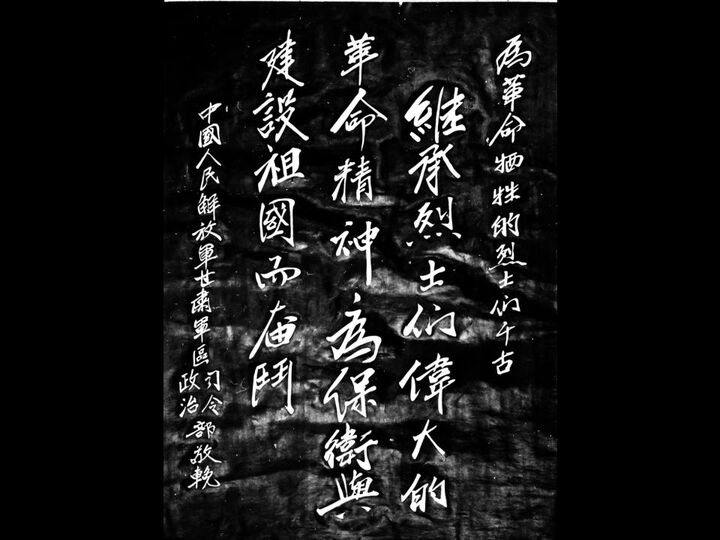 為革命牺牲的烈士们千古
継承烈士们偉大的
革命精神，為保衛與
建設祖國而奋鬥
中國人民解放軍甘肅軍區司令
政治部敬輓